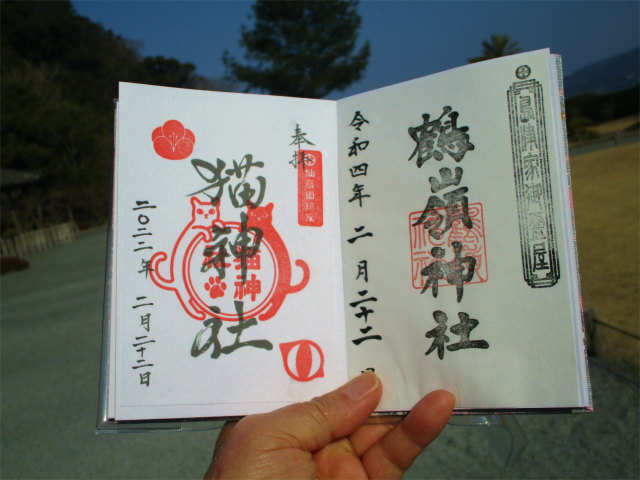 鶴嶺神社
令和四年 二月二十二日
奉拝
仙巌園鎮座
猫神社
猫神
二〇二二年 二月二十二日